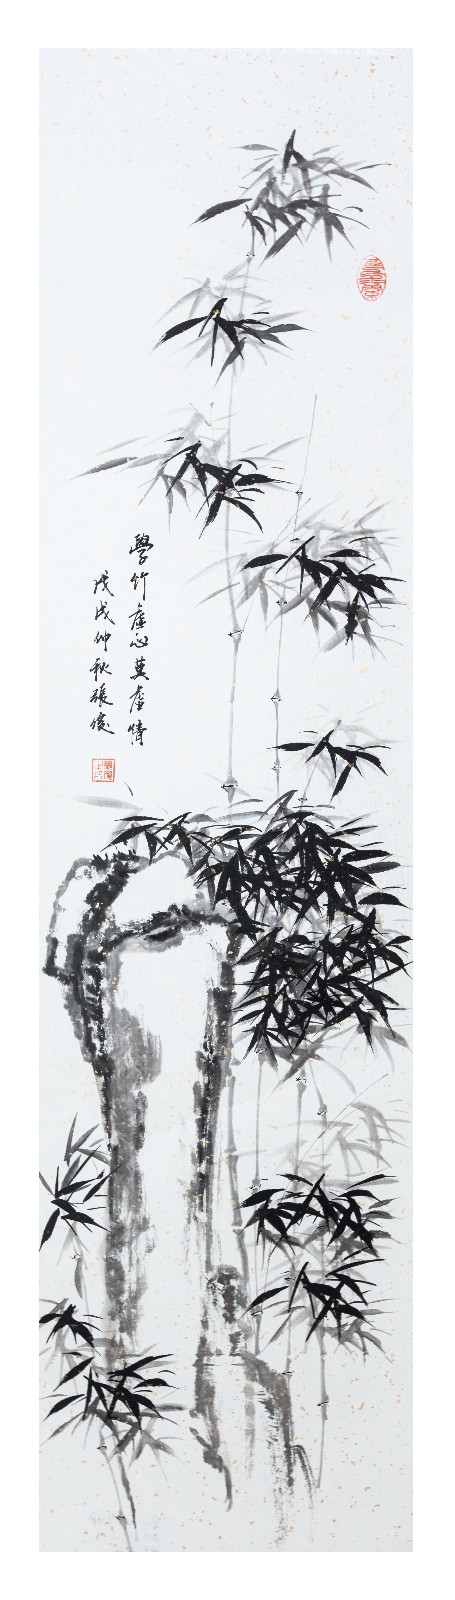 學竹虛心莫虛情
戊戌仲秋張俊